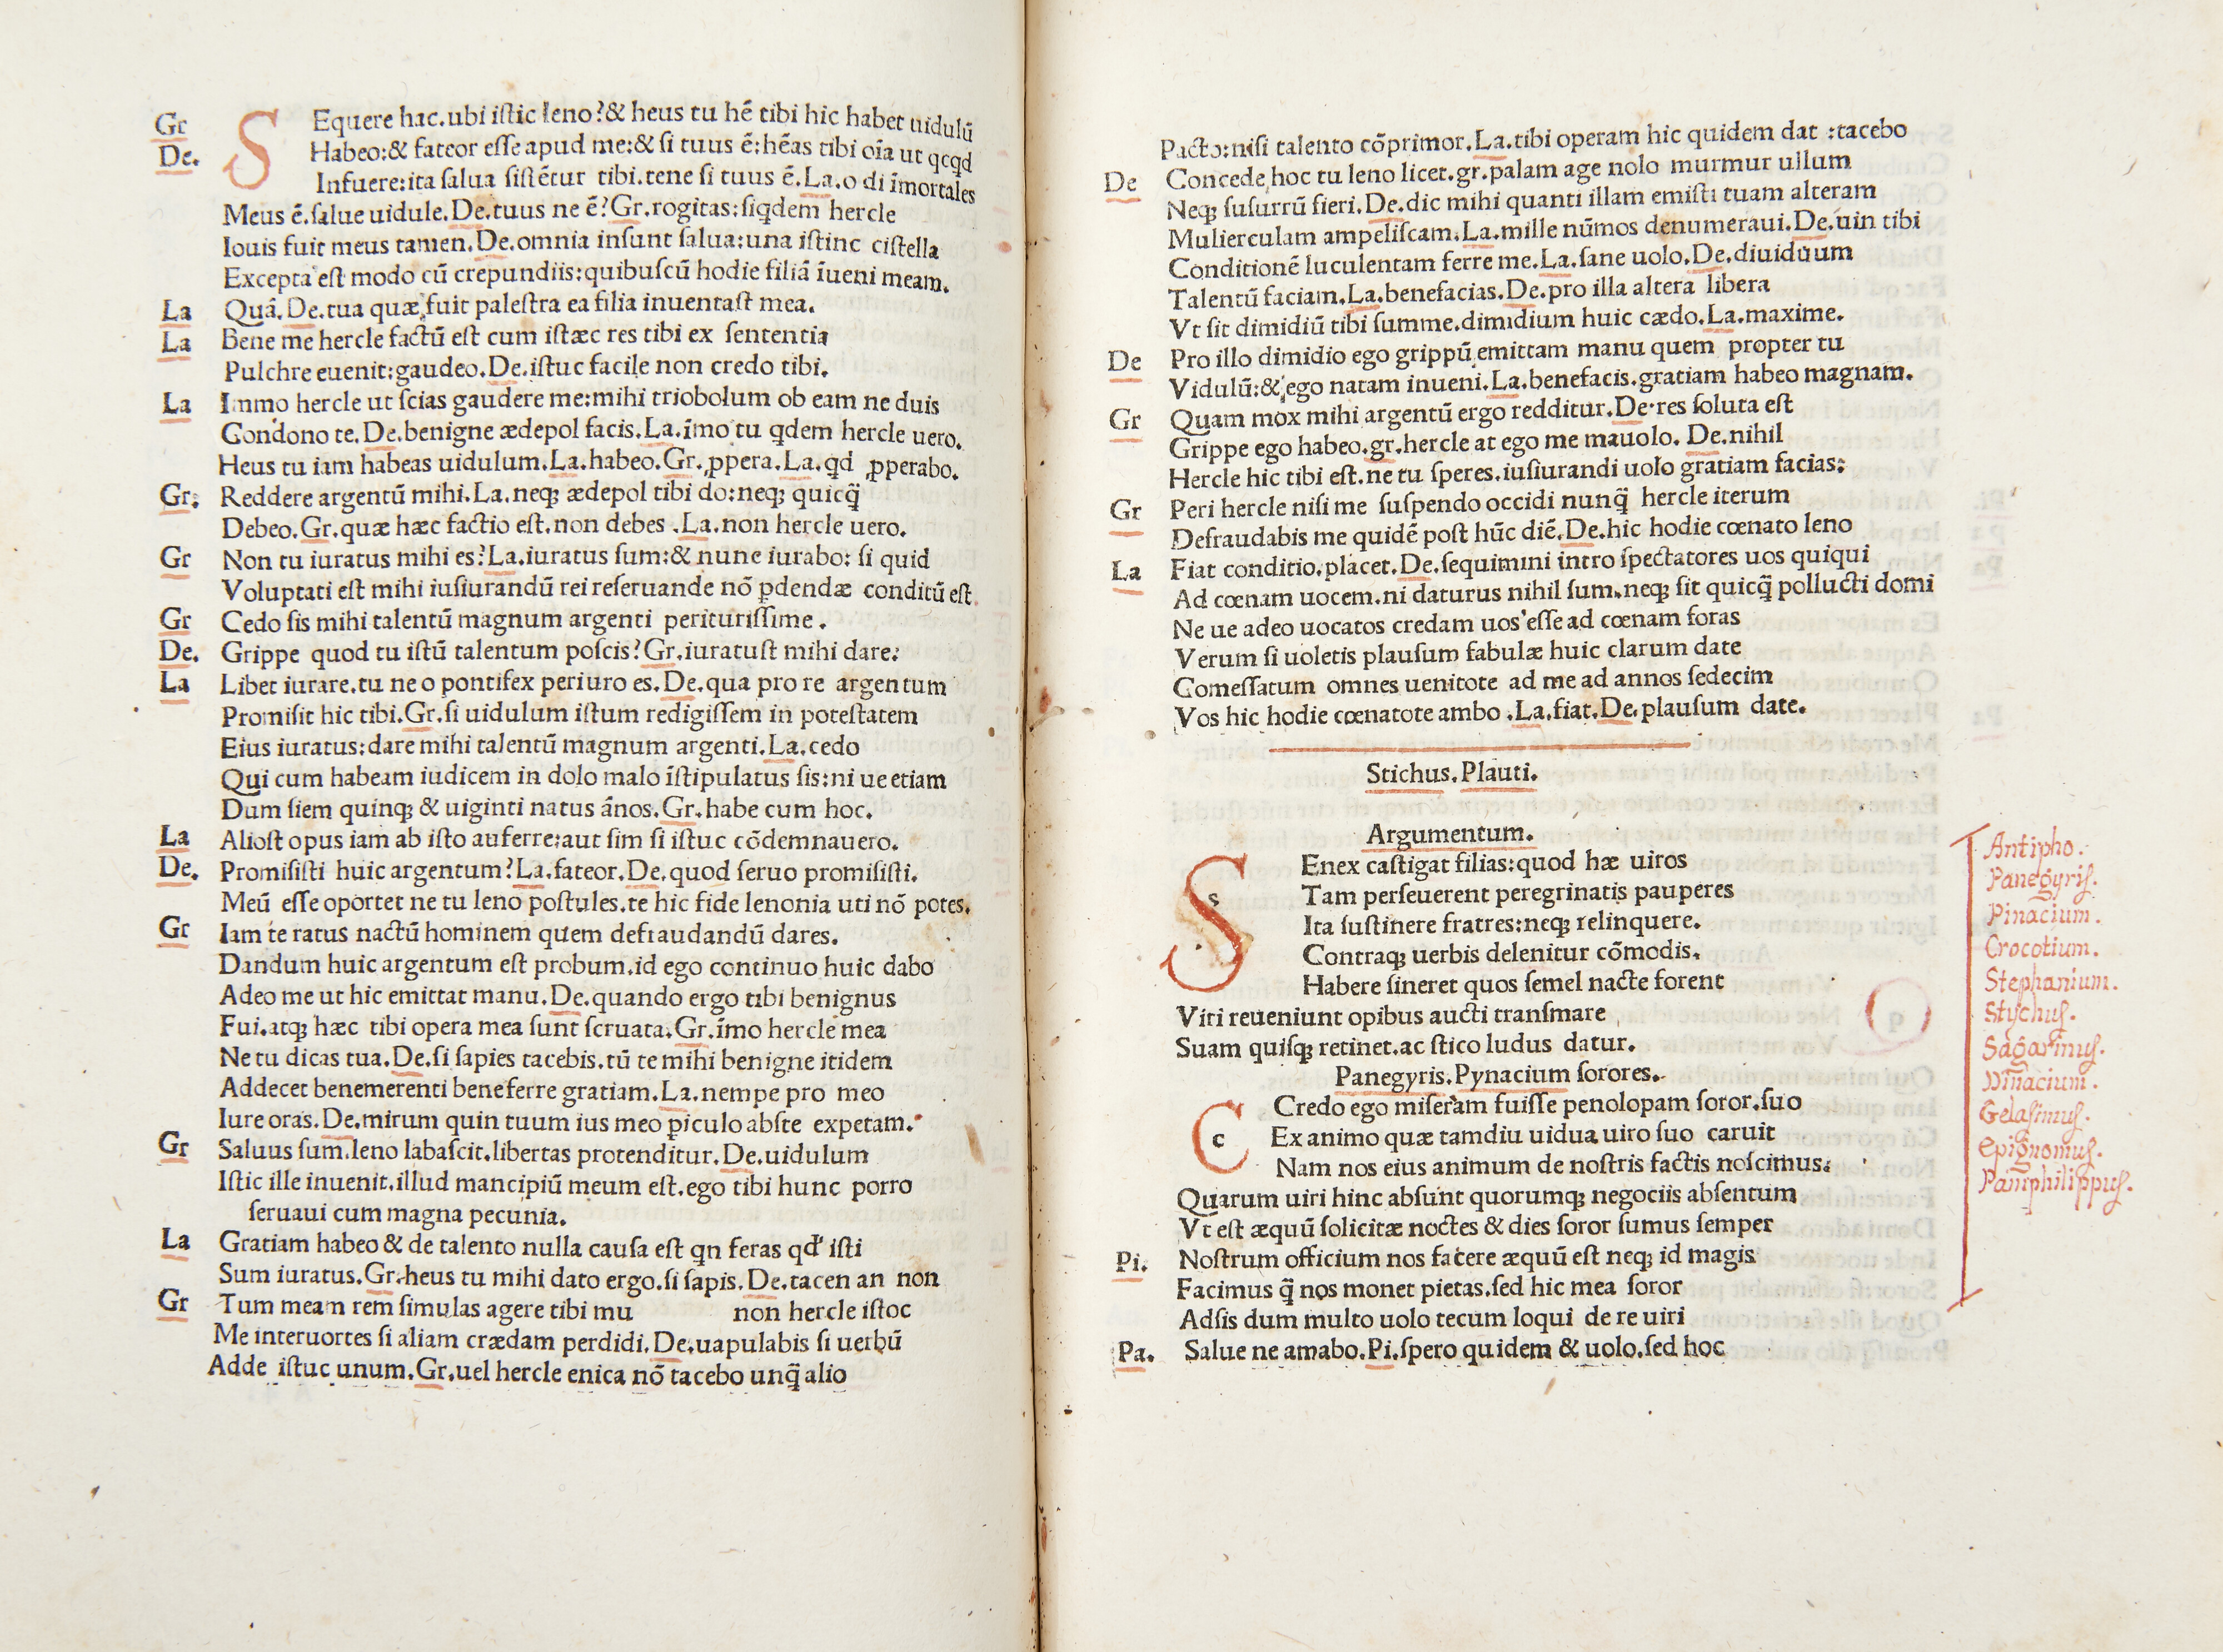 Gr SEquere hac.ubi iſtic leno?& heus tu hē tibi hic habet uidulū
De. Habeo:& fateor eſſe apud me:& ſi tuus ē:hēas tibi oīa ut qcqd
Infuere:ita ſalua ſiſtētur tibi.tene ſi tuus ē.La.o di īmortales
Meus ē.ſalue uidule.De.tuus ne ē?Gr.rogitas:ſiqdem hercle
Iouis fuit meus tamen.De.omnia inſunt ſalua:una iſtinc ciſtella
Excepta eſt modo cū crepundiis:quibuſcū hodie filiā īueni meam.
La Quā.De.tua quæ fuit paleſtra ea filia inuentaſt mea.
La Bene me hercle factū eſt cum iſtæc res tibi ex ſententia
Pulchre euenit:gaudeo.De.iſtuc facile non credo tibi.
La Immo hercle ut ſcias gaudere me:mihi triobolum ob eam ne duis
Condono te.De.benigne ædepol facis.La.īmo tu qdem hercle uero.
Heus tu iam habeas uidulum.La.habeo.Gr.ꝓpera.La.qd ꝓperabo.
Gr: Reddere argentū mihi.La.neqꝫ ædepol tibi do:neqꝫ quicq̄
Debeo.Gr.quæ hæc factio eſt.non debes .La.non hercle uero.
Gr Non tu iuratus mihi es?La.iuratus ſum:& nunc iurabo: ſi quid
Voluptati eſt mihi iuſiurandū rei reſeruande nō ꝑdendæ conditū eſt.
Gr Cedo ſis mihi talentū magnum argenti perituriſſime .
De. Grippe quod tu iſtū talentum poſcis?Gr.iuratuſt mihi dare:
La Libet iurare.tu ne o pontifex periuro es.De.qua pro re argentum
Promiſit hic tibi.Gr.ſi uidulum iſtum redigiſſem in poteſtatem
Eius iuratus:dare mihi talentū magnum argenti.La.cedo
Qui cum habeam iudicem in dolo malo īſtipulatus ſis:ni ue etiam
Dum ſiem quinqꝫ & uiginti natus ānos.Gr.habe cum hoc.
La Alioſt opus iam ab iſto auferre:aut ſim ſi iſtuc cōdemnauero.
De. Promiſiſti huic argentum?La.fateor.De.quod ſeruo promiſiſti.
Meū eſſe oportet ne tu leno poſtules.te hic fide lenonia uti nō potes.
Gr Iam te ratus nactū hominem quem defraudandū dares.
Dandum huic argentum eſt probum.id ego continuo huic dabo
Adeo me ut hic emittat manu.De.quando ergo tibi benignus
Fui.atqꝫ hæc tibi opera mea ſunt ſcruata.Gr.īmo hercle mea
Ne tu dicas tua.De.ſi ſapies tacebis.tū te mihi benigne itidem
Addecet benemerenti beneferre gratiam.La.nempe pro meo
Iure oras.De.mirum quin tuum ius meo ꝑiculo abſte expetam.
Gr Saluus ſum.leno labaſcit.libertas protenditur.De.uidulum
Iſtic ille inuenit.illud mancipiū meum eſt.ego tibi hunc porro
ſeruaui cum magna pecunia.
La Gratiam habeo & de talento nulla cauſa eſt qn feras qd' iſti
Sum iuratus.Gr.heus tu mihi dato ergo.ſi ſapis.De.tacen an non
Gr Tum meam rem ſimulas agere tibi mu non hercle iſtoc
Me interuortes ſi aliam crædam perdidi.De.uapulabis ſi uerbū
Adde iſtuc unum.Gr.uel hercle enica nō tacebo unq̄ alio
Pacto:niſi talento cōprimor.La.tibi operam hic quidem dat :tacebo
De Concede hoc tu leno licet.gr.palam age nolo murmur ullum
Neqꝫ ſuſurrū fieri.De.dic mihi quanti illam emiſti tuam alteram
Mulierculam ampeliſcam.La.mille nūmos denumeraui.De.uin tibi
Conditionē luculentam ferre me.La.ſane uolo.De.diuiduum
Talentū faciam.La.benefacias.De.pro illa altera libera
Vt ſit dimidiū tibi ſumme.dimidium huic cædo.La.maxime.
De Pro illo dimidio ego grippū emittam manu quem propter tu
Vidulū:& ego natam inueni.La.benefacis.gratiam habeo magnam.
Gr Quam mox mihi argentū ergo redditur.De.res ſoluta eſt
Grippe ego habeo.gr.hercle at ego me mauolo. De.nihil
Hercle hic tibi eſt.ne tu ſperes.iuſiurandi uolo gratiam facias:
Gr Peri hercle niſi me ſuſpendo occidi nunq̄ hercle iterum
Defraudabis me quidē poſt hūc diē.De.hic hodie cœnato leno
La Fiat conditio.placet.De.ſequimini intro ſpectatores uos quiqui
Ad cœnam uocem.ni daturus nihil ſum.neqꝫ ſit quicq̄ polluctī domi
Ne ue adeo uocatos credam uos eſſe ad cœnam foras
Verum ſi uoletis plauſum fabulæ huic clarum date
Comeſſatum omnes uenitote ad me ad annos ſedecim
Vos hic hodie cœnatote ambo .La.fiat.De.plauſum date.
Stichus.Plauti.
Argumentum.
SEnex caſtigat filias:quod hæ uiros
Tam perſeuerent peregrinatis pauperes
Ita ſuſtinere fratres:neqꝫ relinquere.
Contraqꝫ uerbis delenitur cōmodis.
Habere ſineret quos ſemel nacte forent
Viri reueniunt opibus aucti tranſmare
Suam quiſqꝫ retinet.ac ſtico ludus datur.
Panegyris.Pynacium ſorores.
Credo ego miſeram fuiſſe penolopam ſoror.ſuo
Ex animo quæ tamdiu uidua uiro ſuo caruit
Nam nos eius animum de noſtris factis noſcimus:
Quarum uiri hinc abſunt quorumqꝫ negociis abſentum
Vt eſt æquū ſolicitæ noctes & dies ſoror ſumus ſemper
Pi. Noſtrum officium nos facere æquū eſt neqꝫ id magis
Facimus q̄ nos monet pietas.ſed hic mea ſoror
Adſis dum multo uolo tecum loqui de re uiri
Pa. Salue ne amabo.Pi.ſpero quidem & uolo.ſed hoc
Antipho.
Panegyris.
Pinacium.
Crocotium.
Stephanium.
Stychus.
Sagarinus.
Dinacium.
Gelasimus.
Epignomus.
Pamphilippus.